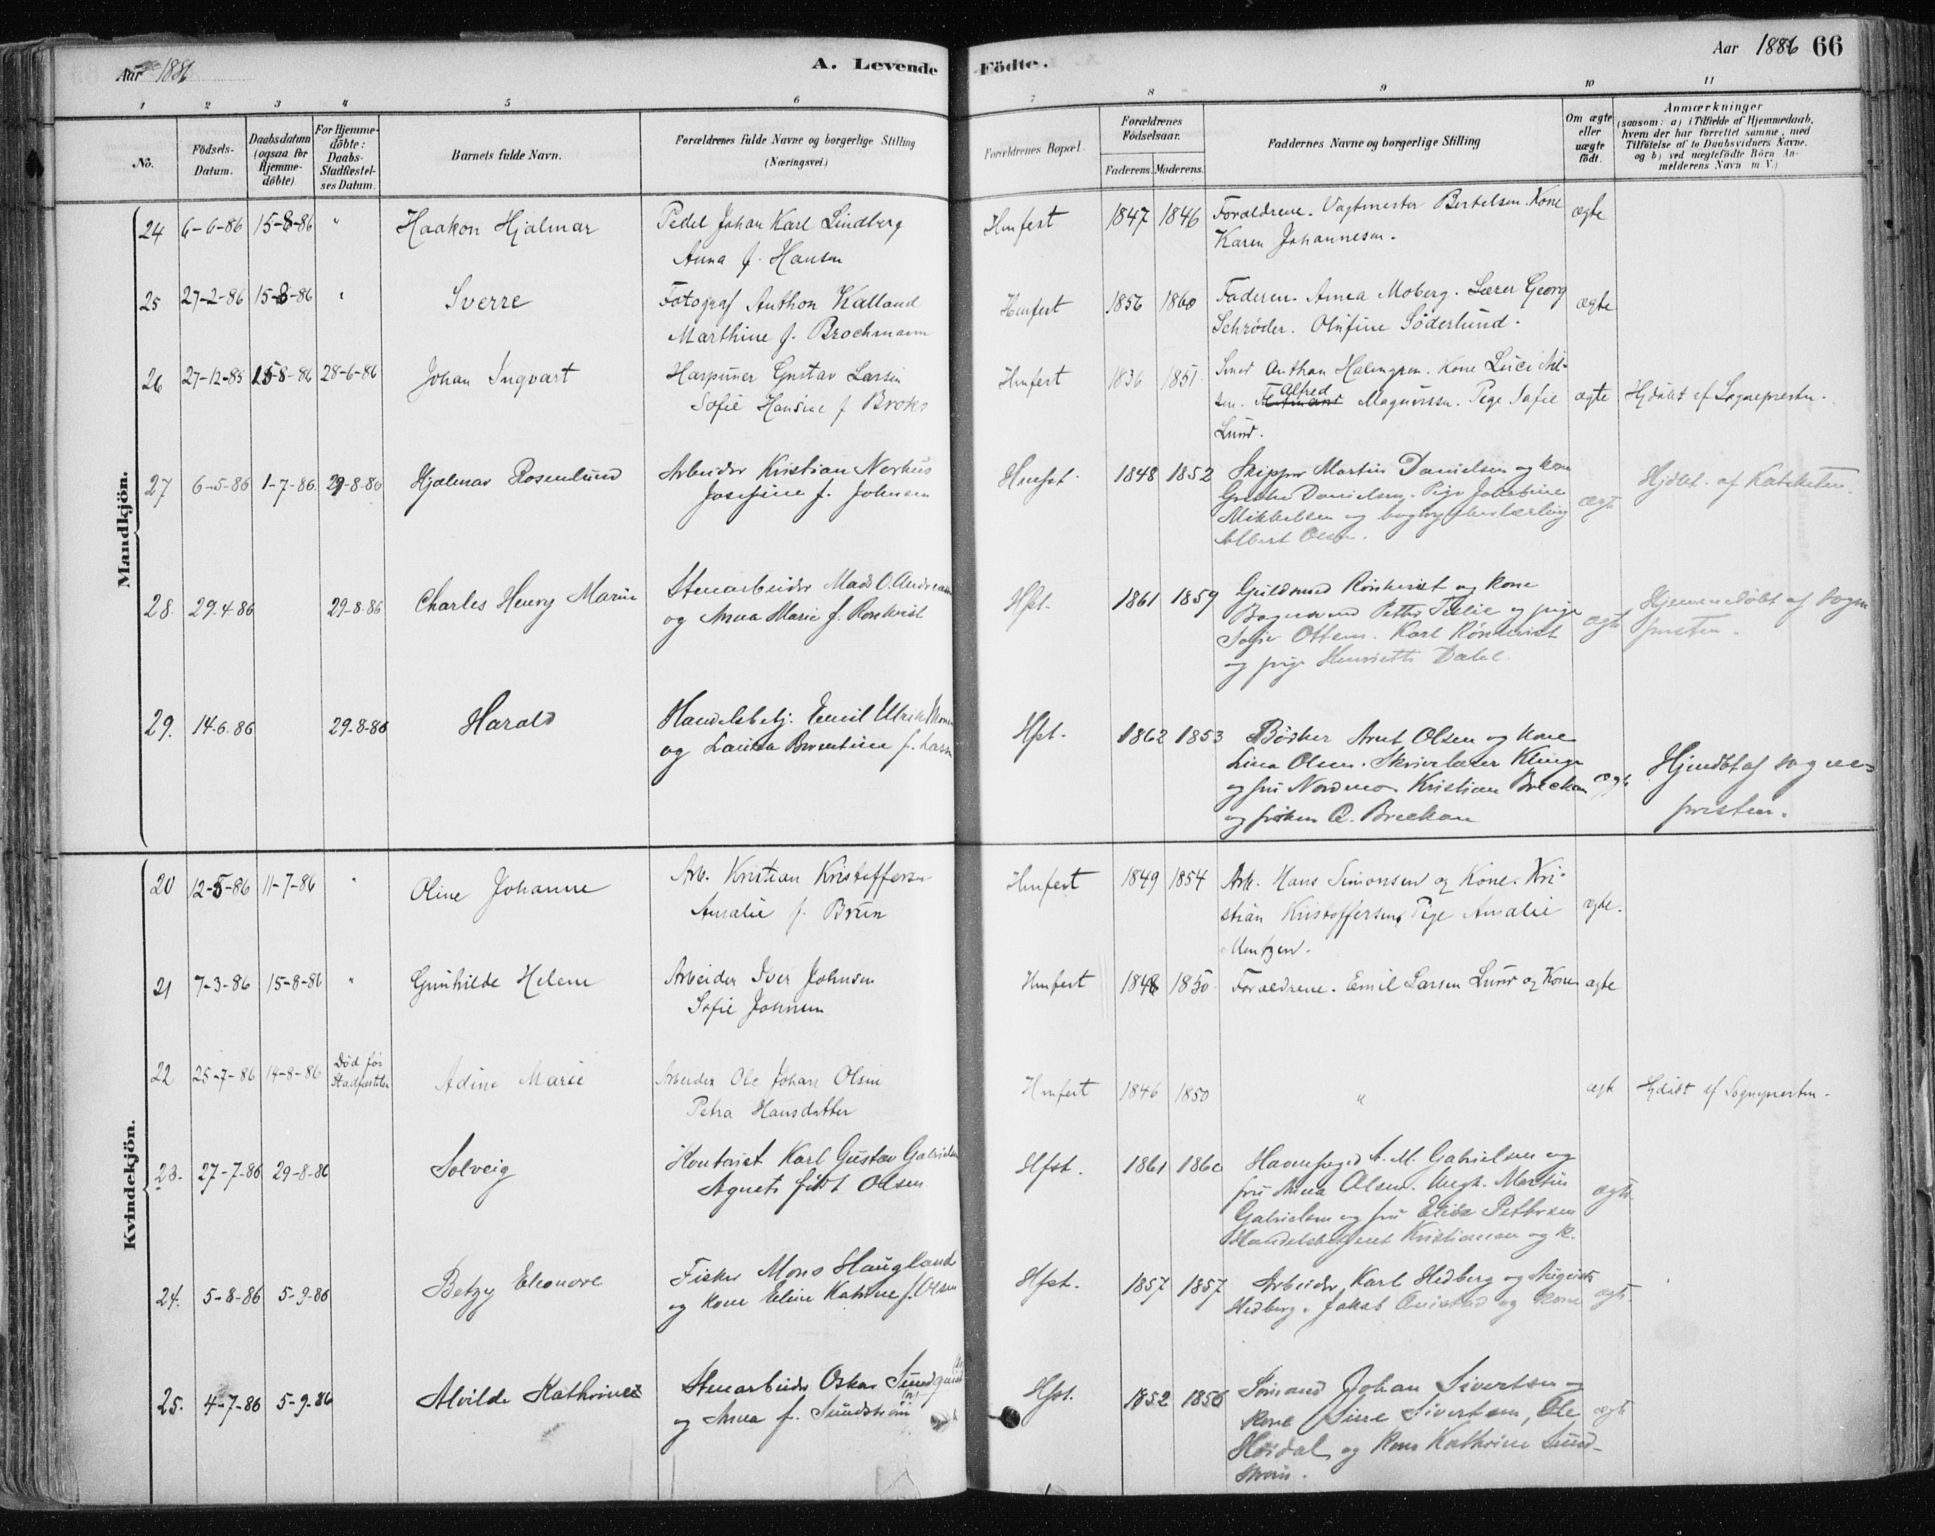 Aar 1886
A. Levende Födte.
Aar 1886 66
1 2 3 4 5 6 7 8 9 10 11
No.
Födsels-
Datum.
Daabsdatum
(ogsaa for
Hjemme-
döbte)
For Hjemme-
döbte:
Daabs-
Stadfæstel-
ses Datum.
Barnets fulde Navn.
Forældrenes fulde Navne og borgerlige Stilling
(Næringsvei)
Forældrenes Bopæl.
Forældrenes
Födselsaar.
Faderens. Moderens.
Faddernes Navne og borgerlige Stilling
Om ægte
eller
uægte
født.
Anmærkninger
(saasom: a) i Tilfælde af Hjemmedaab,
hvem der har forrettet samme, med
Tilføielse af to Daabsvidners Navne,
og b) ved uægtefödte Börn An-
melderens Navn m V.)
Mandkjön.
24 6-6-86 15-8-86 " Haakon Hjalmar Pedel Johan Karl Lindberg Hmfest 1847 1846 Forældrene. Vagtmester Bertelsen. Kone ægte
Anna f. Hansen Karen Johannesen.
25 27-2-86 15-8-86 " Sverre Fotograf Anthon Kalland Hmfest 1856 1860 Faderen. Anna Moberg. Lærer Georg ægte
Marthine f. Brochmann Schrøder. Olufine Söderlund.
26 27-12-85 15-8-86 28-6-86 Johan Ingvart Harpuner Gustav Larsen Hmfest 1836 1851 Smed Anthon Halmgren. Kone Luci Nil-
Sofie Hansine f Broks sen. Alfred Magnussen. Pige Sofie ægte Hjdøbt af Sognepresten.
Lund.
27 6-5-86 1-7-86 29-8-86 Hjalmar Rosenlund Arbeider Kristian Nerhus Hmfst. 1848 1852 Skipper Martin Danielsen og kone
Josefine f. Johnsen Danielsen. Pige Josefine ægte Hjdbt. af Katekten.
Mikkelsen og bogtrykkerlærling
Albert Olsen.
28. 29.4.86 29-8-86 Charles Henry Marin Stenarbeider Mads O. Andreasen Hfst. 1861 1859 Guldsmed Rönkvist og kone
og Anna Marie f. Ronkvist Petter Tellie og pige ægte Hjemmedöbt af sogne
Sofie Ottem. Karl Rönkvist presten.
og pige Henriette Dahl.
29. 14.6.86 29-8-86 Harald Handelsbetj. Emil Ulrik Hfst. 1862 1853 Bödker Arnt Olsen og kone
og Laura Berentine f. Larsen Lina Olsen. Skrivelærer Klinge
og fru Nordmo. Kristian Breckan ægte Hjmdöbt af sogne-
og fröken O. Breckan presten.
Kvindekjön.
20 12-5-86 11-7-86 " Oline Johanne Arb. Kristian Kristoffersen Hmfest 1849 1854 Arb. Hans Simonsen og Kone. Kri-
Amalie f. Brun stian Kristoffersen, Pige Amalie ægte.
Mentzen.
21 7-3-86 15-8-86 " Gunhilde Helene Arbeider Iver Johnsen Hmfest 1848 1850 Forældrene. Emil Larsen Lund og Kone ægte
Sofie Johnsen
22 25-7-86 14-8-86 Död før
Stadfæstelsen Adine Marie Arbeider Ole Johan Olsen Hmfest 1846 1850 " ægte Hjdöbt af Sognepresten.
Petra Hansdatter
23. 27-7-86 29-8-86 Solveig Kontorist Karl Gustav Gabrielsen Hfst. 1861 1860 Havnefoged A. M. Gabrielsen og
Agnete födt Olsen fru Anna Olsen. Ungk. Martin ægte
Gabrielsen og fru Elise Pettersen
Handelsbetjent Kristiansen og k.
24. 5-8-86 5-9-86 Betzy Eleonore Fisker Mons Haugland Hfst. 1857 1857 Arbeider Karl Hedberg og Augusta
og kone Eline Katrine f. Olsen Hedberg. Jakob og kone ægte.
25. 4-7-86 5-9-86 Alvilde Kathrine Stenarbeider Oskar Sundquist Hfst. 1852 1856 Sömand Johan Sivertsen og
og Anna f. Sundström kone Sine Sivertsen, Ole ægte
Höidal og kone Kathrine Sund-
ström.